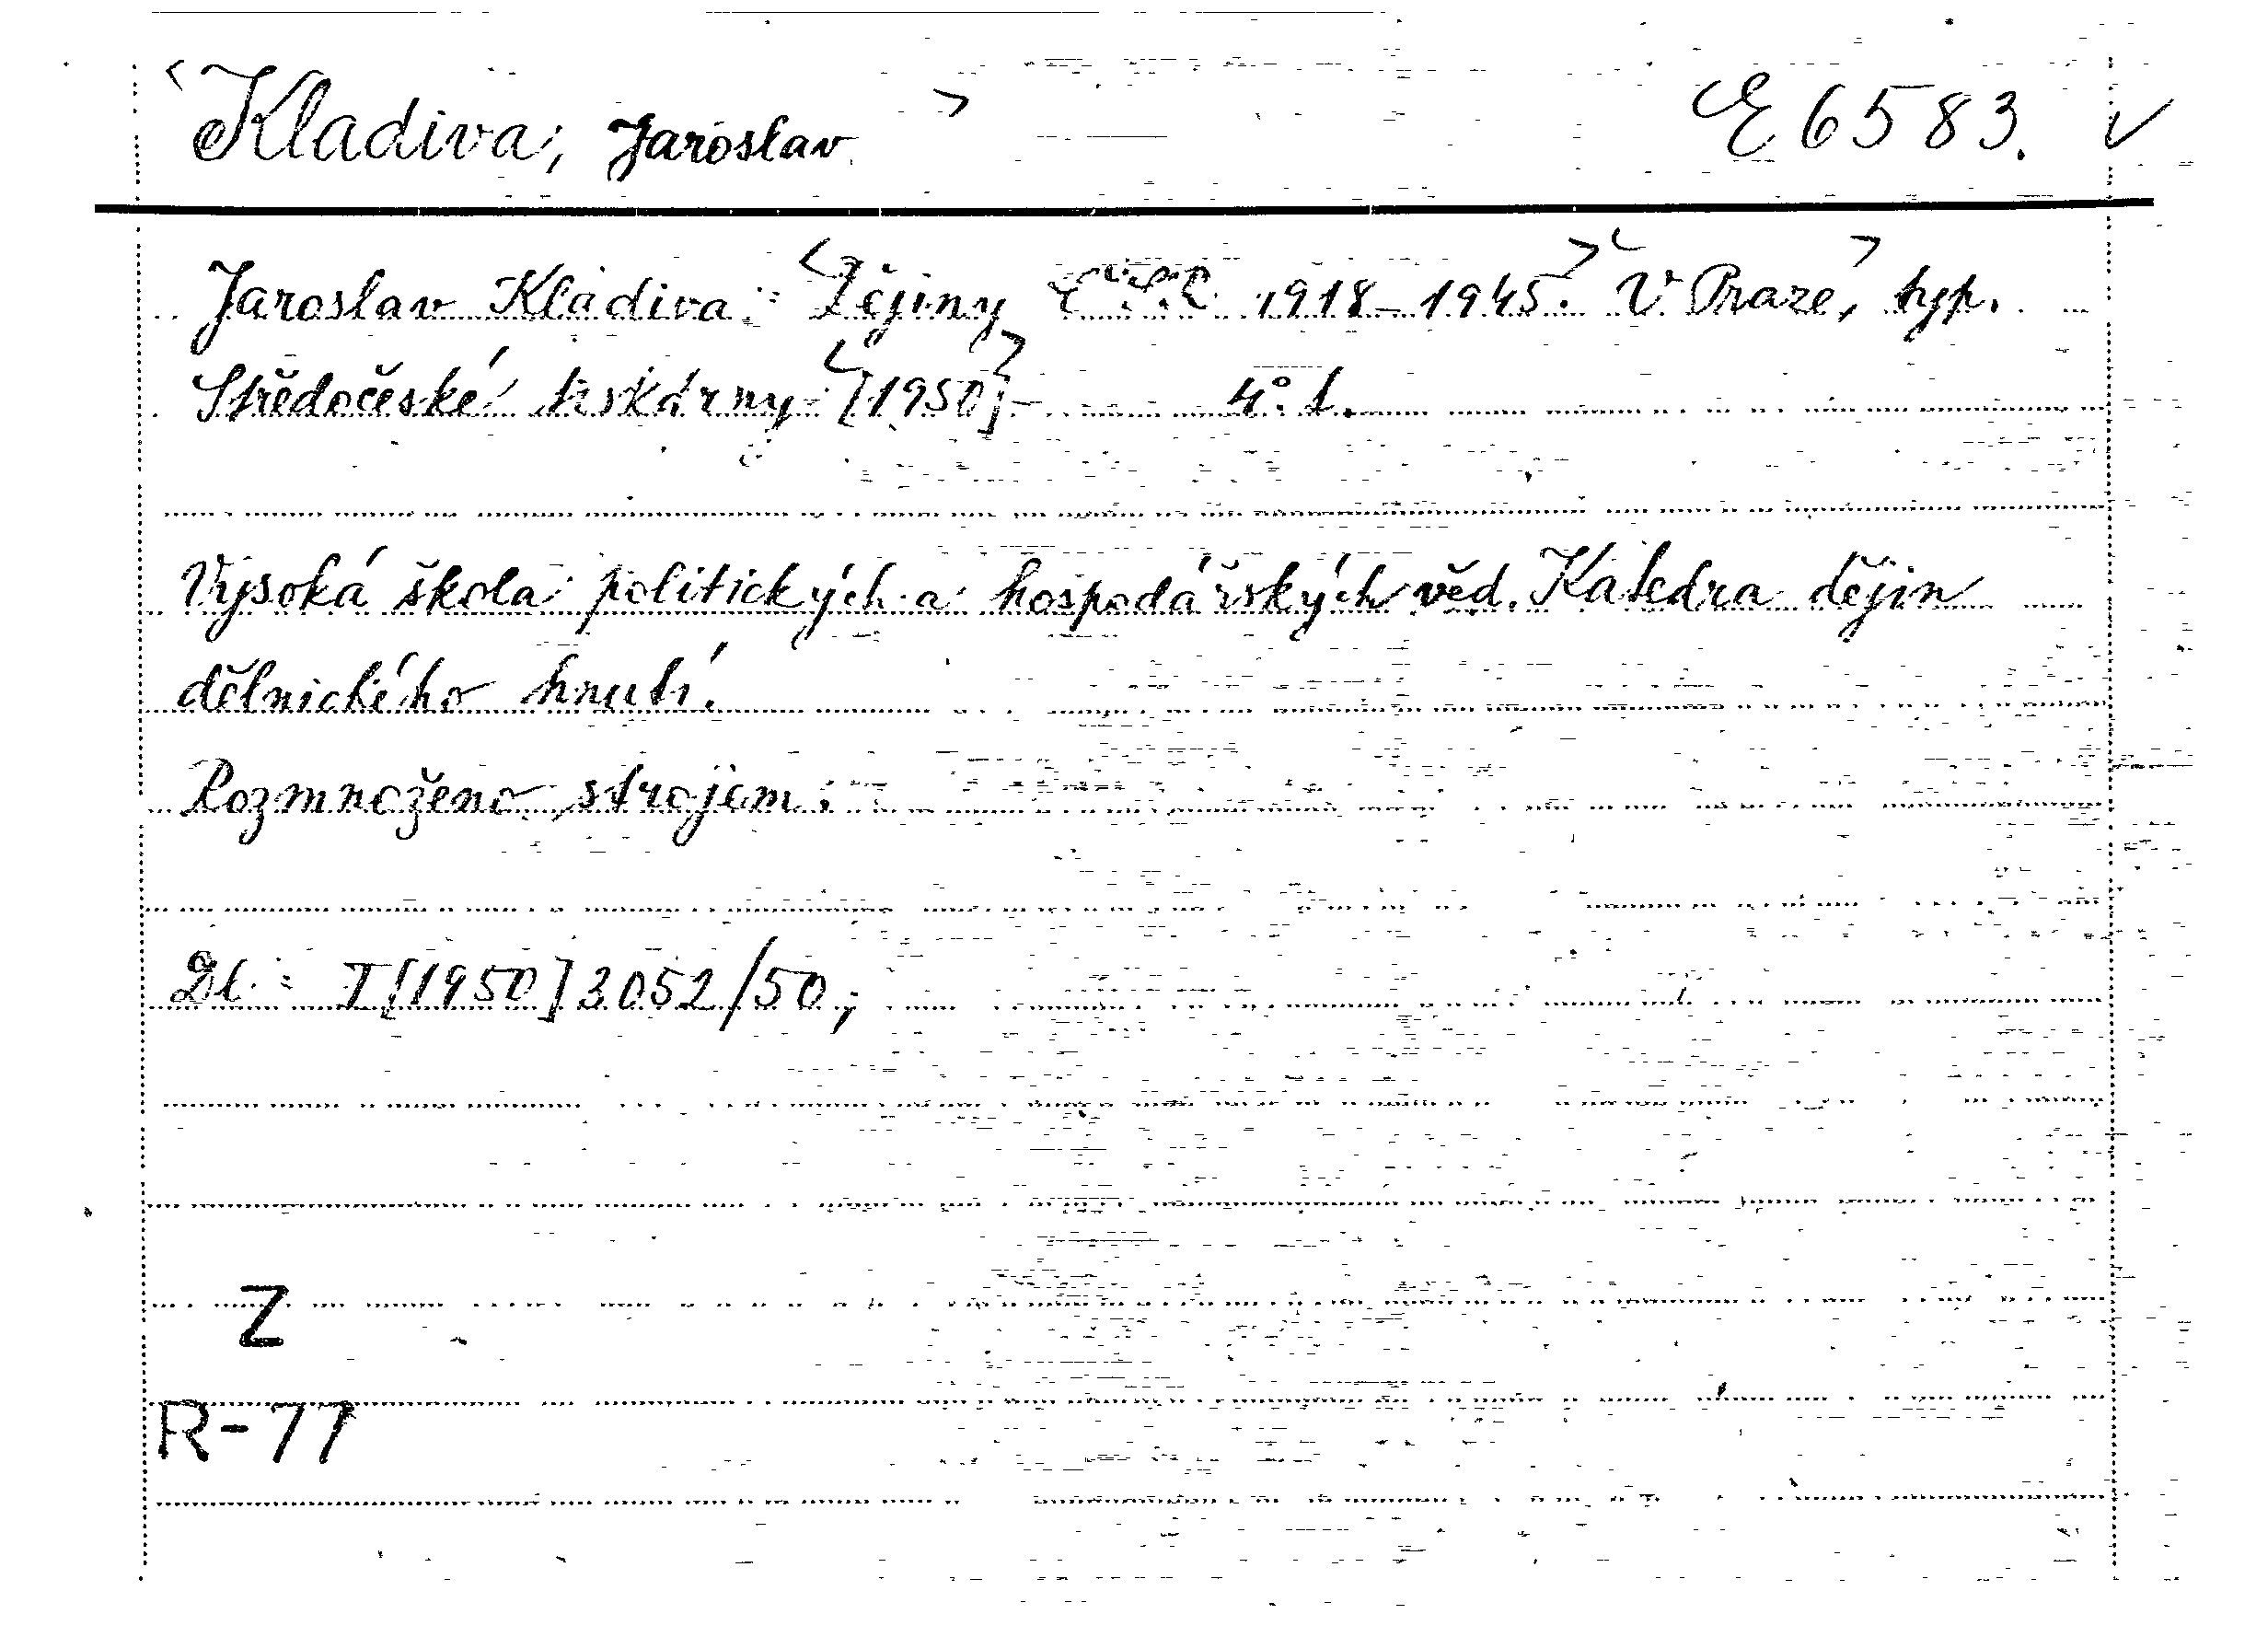 Kladiva, Jaroslav E 6583.
Jaroslav Kladiva: Dějiny 1918-1945. V Praze, typ.
Středočeské tiskárny [1950]- 4°. l.
Vysoká škola politických a hospodářských věd. Katedra dějin
dělnického hnutí.
Rozmnoženo strojem.
Dl.: I[1950]3052/50;
Z
R-77